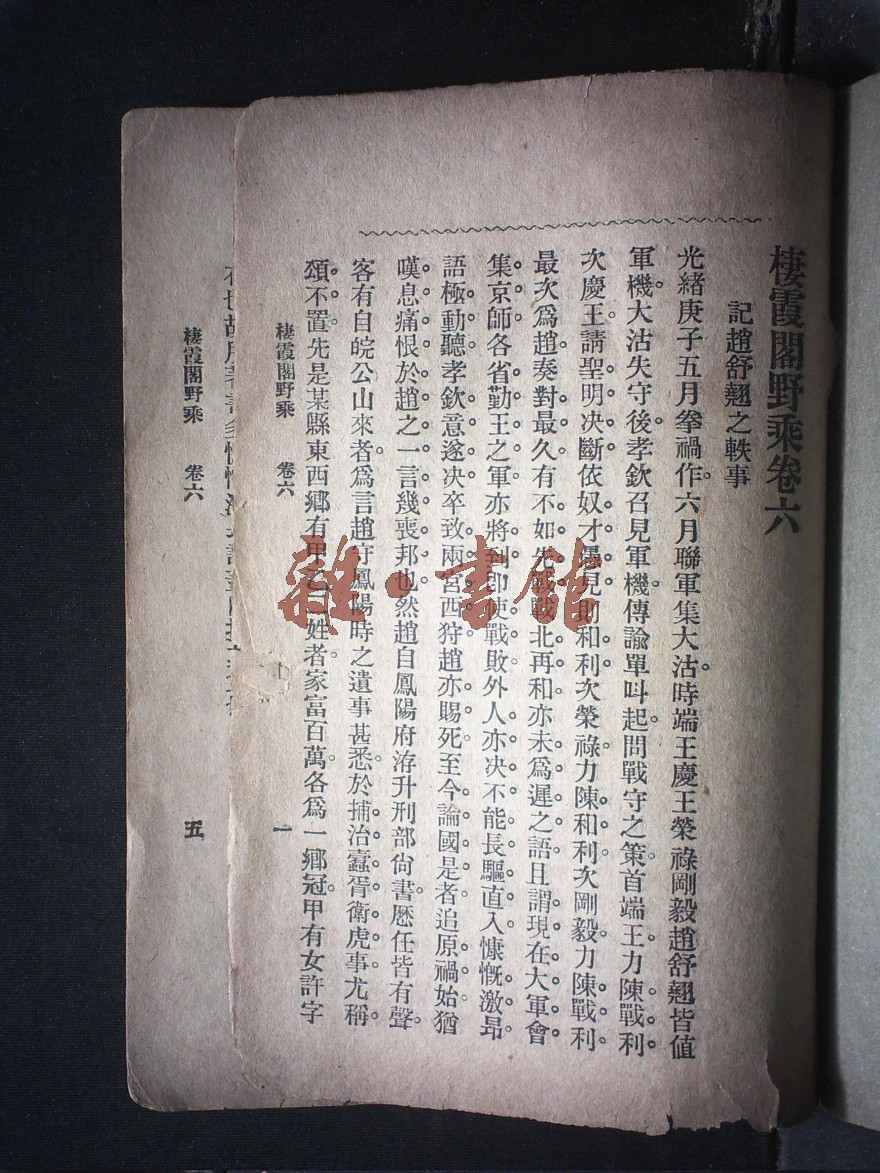 棲霞閣野乘卷六
記趙舒翹之軼事
光緒庚子五月拳禍作。六月聯軍集大沽。時端王慶王榮祿剛毅趙舒翹皆值
軍機。大沽失守後。孝欽召見軍機。傳諭單叫起。問戰守之策。首端王。力陳戰利。
次慶王。請聖明决斷。依奴才愚見。則和利。次榮祿。力陳和利。次剛毅。力陳戰利。
最次爲趙。奏對最久。有不如先戰。戰北再和。亦未爲遲之語。且謂現在大軍會
集京師。各省勤王之軍。亦將到。即使戰敗。外人亦决不能長驅直入。慷慨激昂。
語極動聽。孝欽意遂决。卒致兩宮西狩。趙亦賜死。至今論國是者。追原禍始。猶
嘆息痛恨於趙之一言幾喪邦也。然趙自鳳陽府洊升刑部尙書。歷任皆有聲。
客有自皖公山來者。爲言趙守鳳陽時之遺事甚悉。於捕治蠹胥衛虎事。尤稱
頌不置。先是某縣東西鄉有甲乙二姓者。家富百萬。各爲一鄉冠。甲有女許字
棲霞閣野乘 卷六 一
棲霞閣野乘 卷六 五
雜·書館